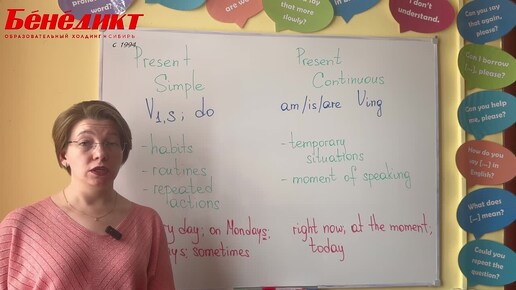 Бенедикт
ОБРАЗОВАТЕЛЬНЫЙ ХОЛДИНГ • СИБИРЬ
с 1994
Present
Simple
V1,s; do
- habits
- routines
- repeated
actions
day; on Mondays;
sometimes
Present
Continuous
am/is/are Ving
- temporary
situations
- moment of speaking
right now; at the moment;
today
word?
are we
that more
slowly?
I don't
understand.
Can you say
that again,
please?
Can I borrow
[...], please?
Can you help
me, please?
How do you
say [...] in
English?
What does
[...] mean?
Could you
repeat the
question?